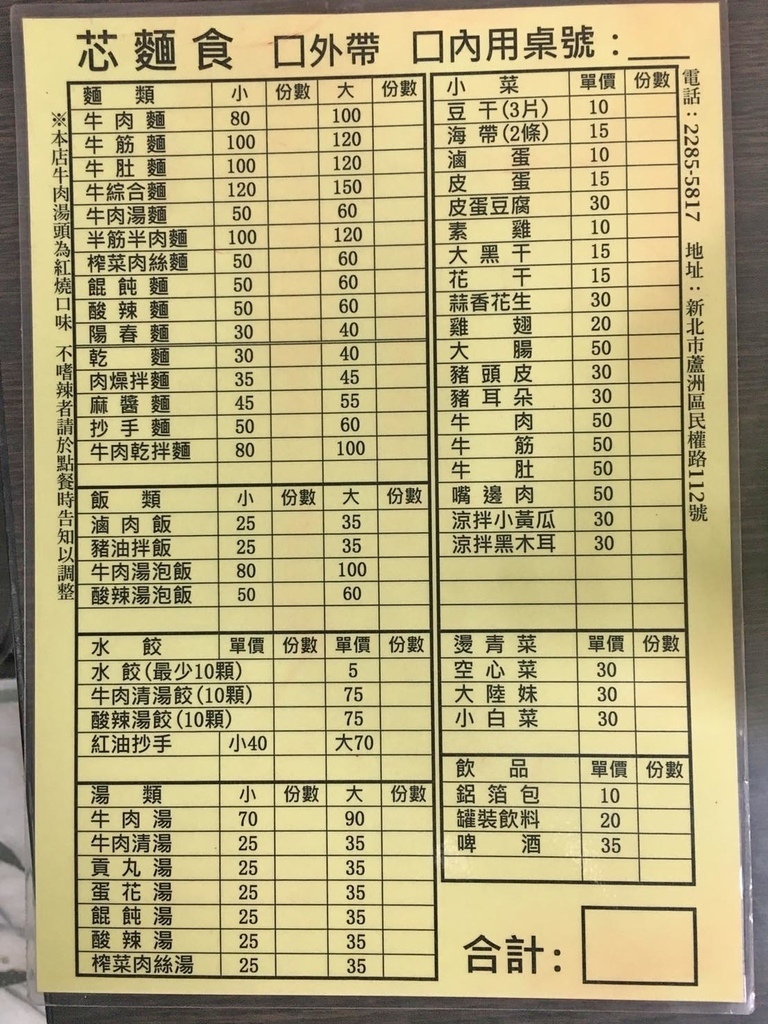 芯麵食 口外帶 口內用桌號：
麵類 小 份數 大 份數
牛肉麵 80 100
牛筋麵 100 120
牛肚麵 100 120
牛綜合麵 120 150
牛肉湯麵 50 60
半筋半肉麵 100 120
榨菜肉絲麵 50 60
餛飩麵 50 60
酸辣麵 50 60
陽春麵 30 40
乾麵 30 40
肉燥拌麵 35 45
麻醬麵 45 55
抄手麵 50 60
牛肉乾拌麵 80 100
飯類 小 份數 大 份數
滷肉飯 25 35
豬油拌飯 25 35
牛肉湯泡飯 80 100
酸辣湯泡飯 50 60
水餃 單價 份數 單價 份數
水餃(最少10顆) 5
牛肉清湯餃(10顆) 75
酸辣湯餃(10顆) 75
紅油抄手 小40 大70
湯類 小 份數 大 份數
牛肉湯 70 90
牛肉清湯 25 35
貢丸湯 25 35
蛋花湯 25 35
餛飩湯 25 35
酸辣湯 25 35
榨菜肉絲湯 25 35
小菜 單價 份數
豆干(3片) 10
海帶(2條) 15
滷蛋 10
皮蛋 15
皮蛋豆腐 30
素雞 10
大黑干 15
花干 15
蒜香花生 30
雞翅 20
大腸 50
豬頭皮 30
豬耳朵 30
牛肉 50
牛筋 50
牛肚 50
嘴邊肉 50
涼拌小黃瓜 30
涼拌黑木耳 30
燙青菜 單價 份數
空心菜 30
大陸妹 30
小白菜 30
飲品 單價 份數
鋁箔包 10
罐裝飲料 20
啤酒 35
合計：
※本店牛肉湯頭為紅燒口味 不嗜辣者請於點餐時告知以調整
電話：2285-5817 地址：新北市蘆洲區民權路112號